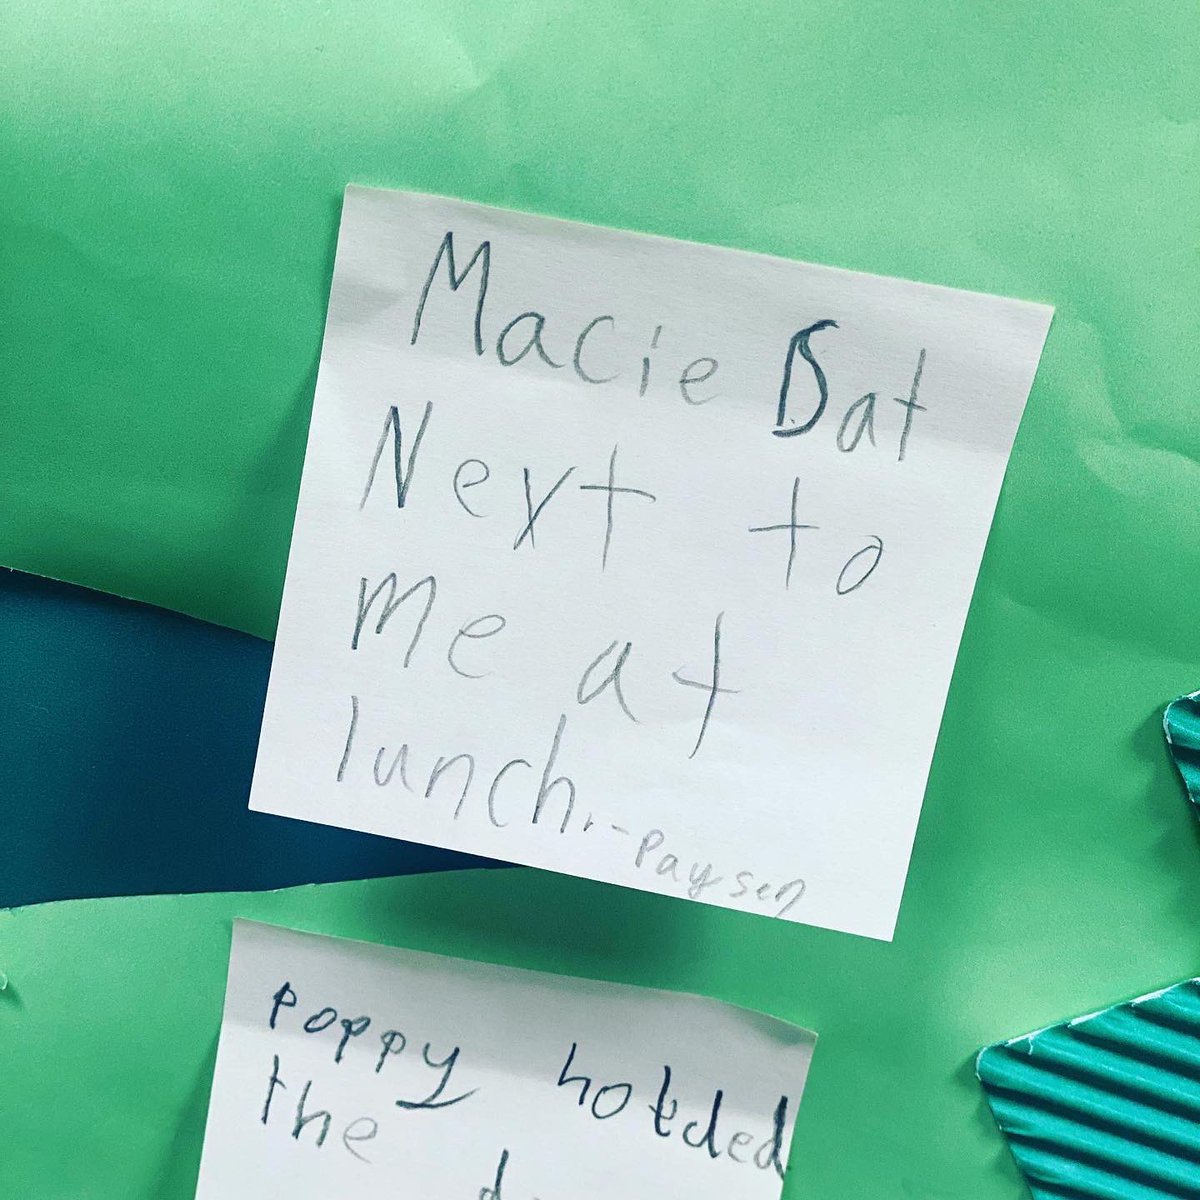 Macie Sat
Next to
me at
lunch.--Paysen
Poppy hotded
the